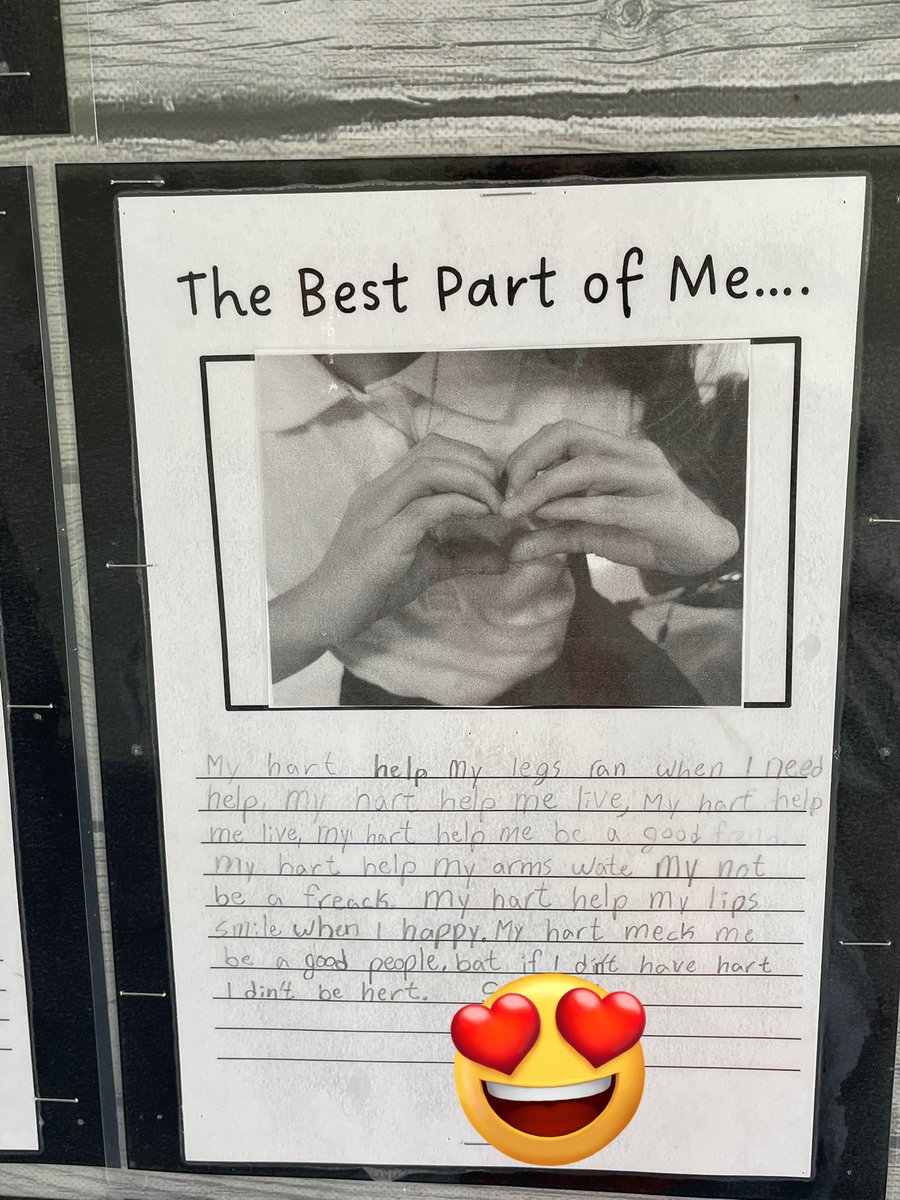 The Best Part of Me....
My hart help my legs ran when I need
help, my hart help me live, My hart help
me live, my hart help me be a good frend.
my hart help my arms wate my not
be a freack. my hart help my lips
smile when I happy. My hart meck me
be a good people, bat if I din't have hart
I din't be hert.